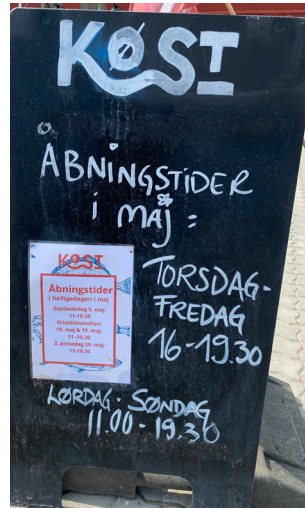 KØST
ÅBNINGSTIDER
i MAJ :
KØST
Åbningstider
i helligedagen i maj
Storbededag 5. maj:
11-19.30
Kristihimmelfart
18. maj & 19. maj:
11 -19.30
2. pinsedag 29. maj:
11-19.30
TORSDAG-
FREDAG
16-19.30
LØRDAG - SØNDAG
11.00 - 19.30